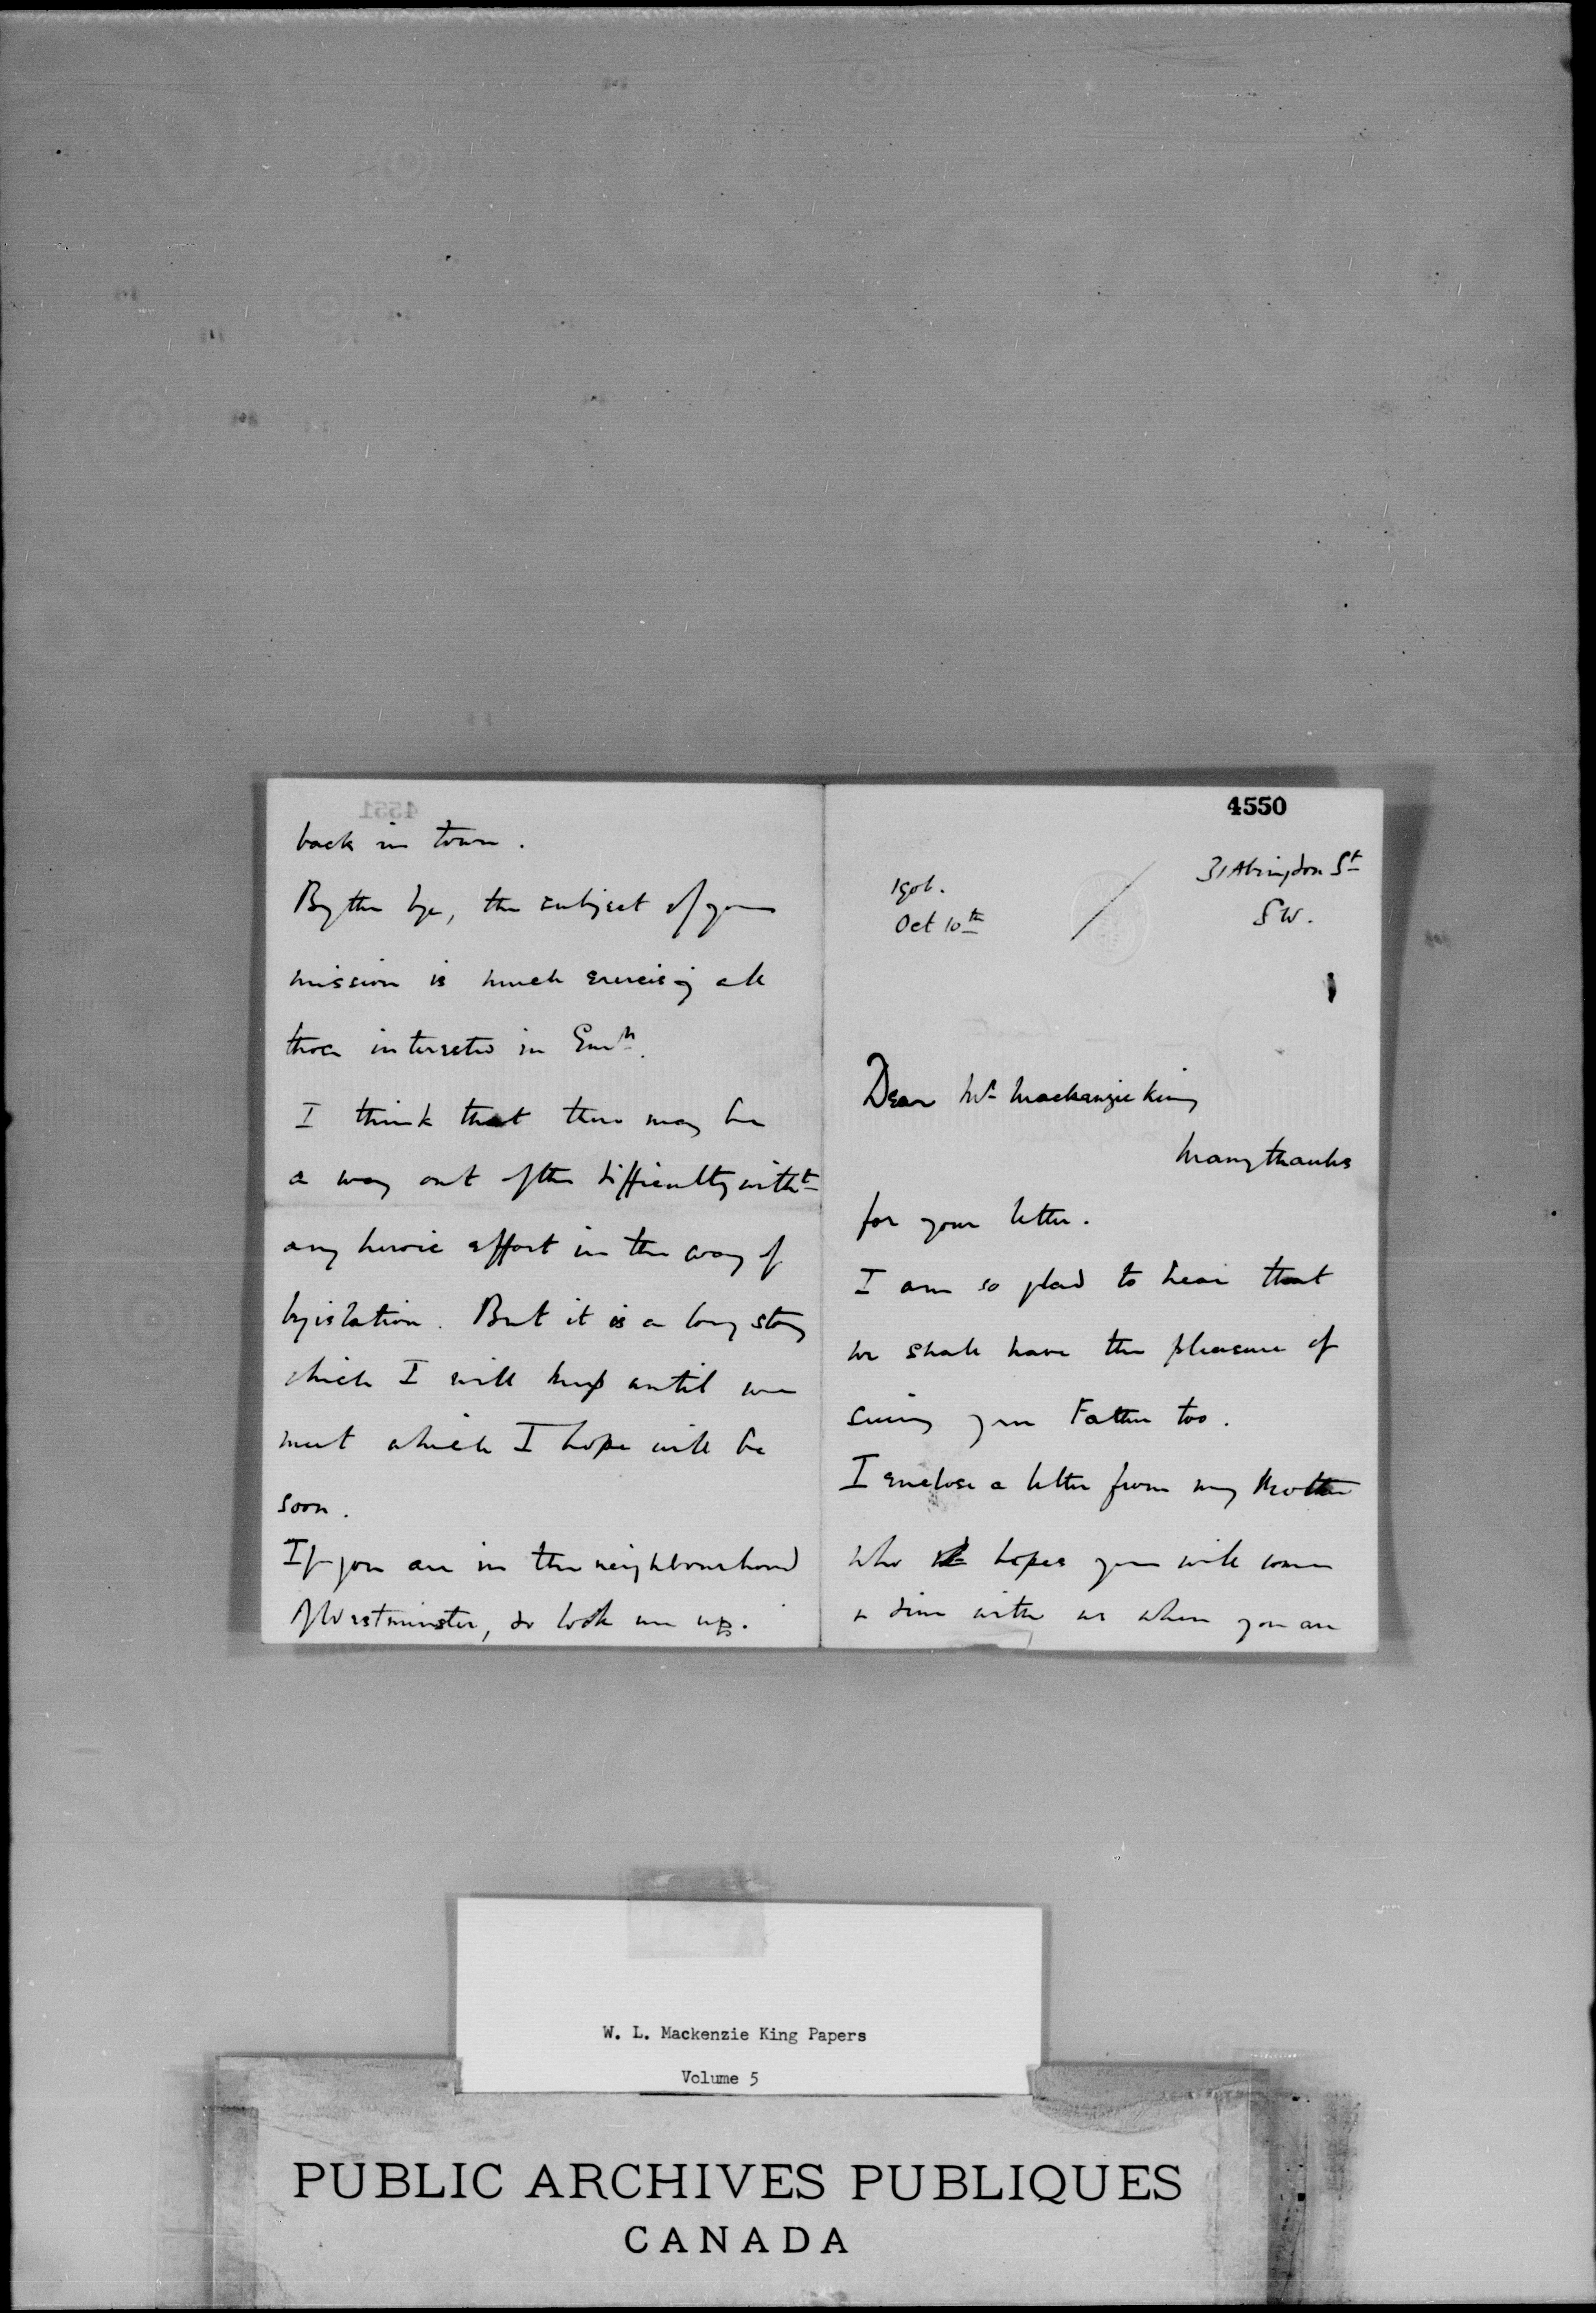 4550
31 Abingdon St
SW.
1906.
Oct 10th
Dear Mr Mackenzie King
Many thanks
for your letter.
I am so glad to hear that
we shall have the pleasure of
seeing your Father too.
I enclose a letter from my Mother
who hopes you will come
& dine with us when you are
4551
back in town.
By the bye, the subject of your
mission is much exercising all
those interested in Emn.
I think that there may be
a way out of the difficulty witht
any heroic effort in the way of
legislation. But it is a long story
which I will keep until we
meet which I hope will be
soon.
If you are in the neighbourhood
of Westminster, do look me up.
W. L. Mackenzie King Papers
Volume 5
PUBLIC ARCHIVES PUBLIQUES
CANADA